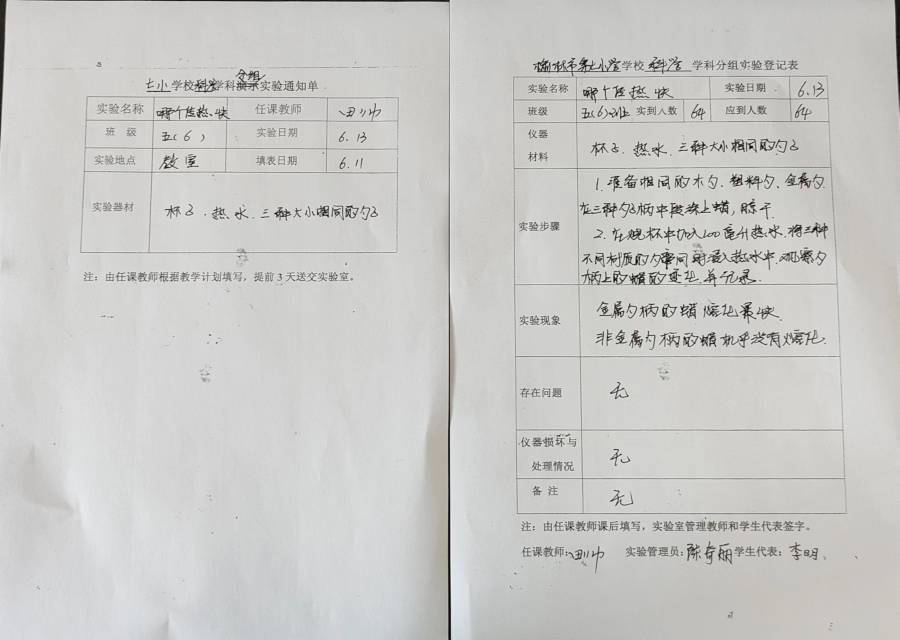 七小学校科学学科分组实验通知单
实验名称 哪个传热快 任课教师
班 级 五(6) 实验日期 6.13
实验地点 教室 填表日期 6.11
实验器材 杯子、热水、三种大小相同的勺子
注：由任课教师根据教学计划填写，提前3天送交实验室。
榆林市第七小学学校 科学 学科分组实验登记表
实验名称 哪个传热快 实验日期 6.13
班级 五(6)班 实到人数 64 应到人数 64
仪器
材料
杯子、热水、三种大小相同的勺子
实验步骤
1、准备相同的木勺、塑料勺、金属勺
在三种勺子柄中段涂上蜡，晾干
2、在烧杯中加入100毫升热水，将三种
不同材质的勺同时浸入热水中，观察勺
柄上的蜡的变化，并记录.
实验现象
金属勺柄的蜡熔化最快
非金属勺柄的蜡几乎没有熔化.
存在问题 无
仪器损坏与
处理情况
无
备 注 无
注：由任课教师课后填写，实验室管理教师和学生代表签字。
任课教师: 实验管理员: 陈奇丽 学生代表: 李明.